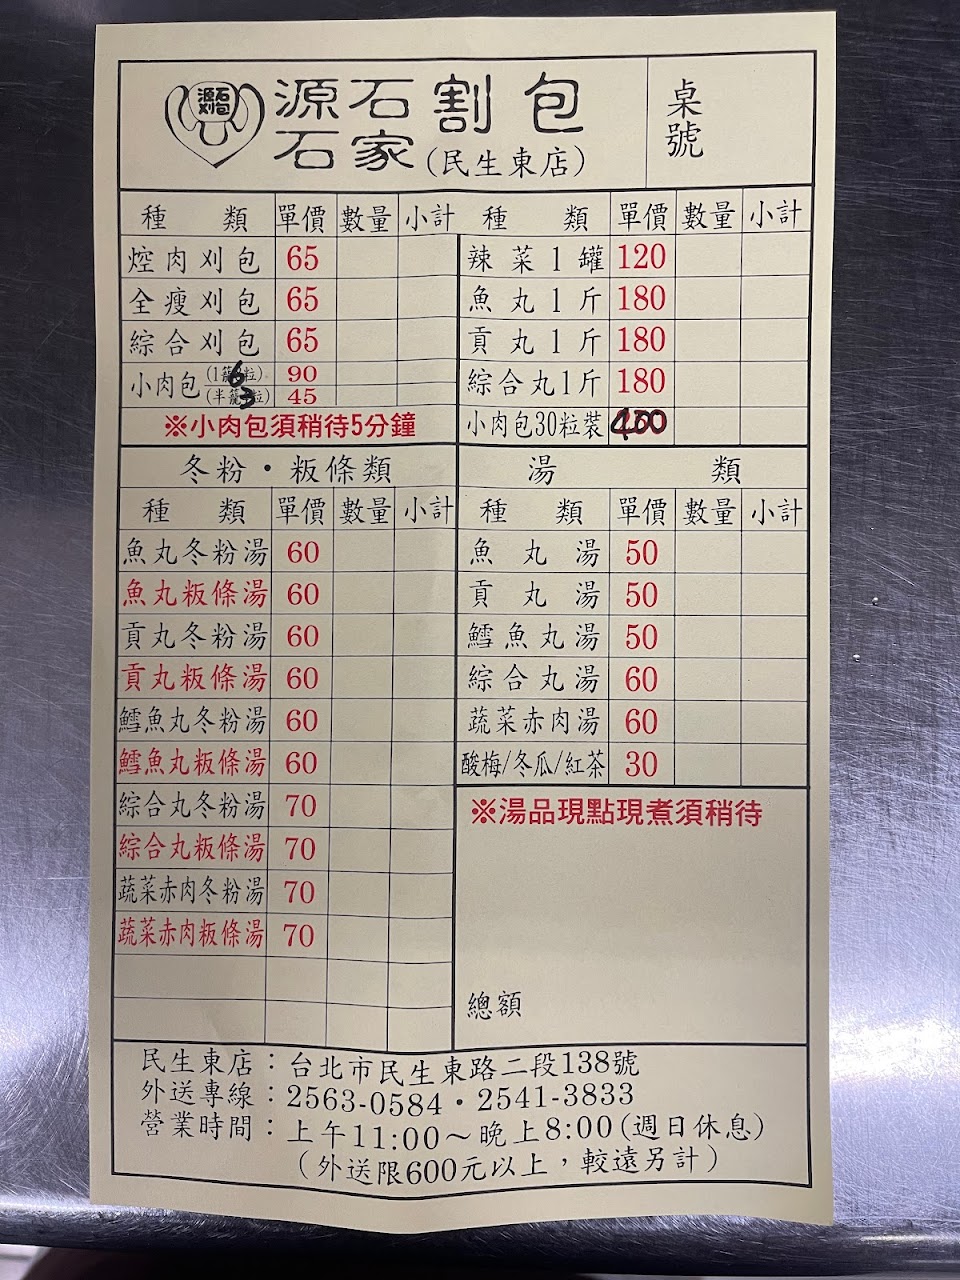 源石刈包
源石割包
石家(民生東店)
桌號
種類 單價 數量 小計
焢肉刈包 65
全瘦刈包 65
綜合刈包 65
小肉包(1籠6粒) 90
(半籠3粒) 45
※小肉包須稍待5分鐘
種類 單價 數量 小計
辣菜1罐 120
魚丸1斤 180
貢丸1斤 180
綜合丸1斤 180
小肉包30粒裝 400
冬粉・粄條類
種類 單價 數量 小計
魚丸冬粉湯 60
魚丸粄條湯 60
貢丸冬粉湯 60
貢丸粄條湯 60
鱈魚丸冬粉湯 60
鱈魚丸粄條湯 60
綜合丸冬粉湯 70
綜合丸粄條湯 70
蔬菜赤肉冬粉湯 70
蔬菜赤肉粄條湯 70
湯類
種類 單價 數量 小計
魚丸湯 50
貢丸湯 50
鱈魚丸湯 50
綜合丸湯 60
蔬菜赤肉湯 60
酸梅/冬瓜/紅茶 30
※湯品現點現煮須稍待
總額
民生東店：台北市民生東路二段138號
外送專線：2563-0584・2541-3833
營業時間：上午11:00～晚上8:00(週日休息)
(外送限600元以上，較遠另計)